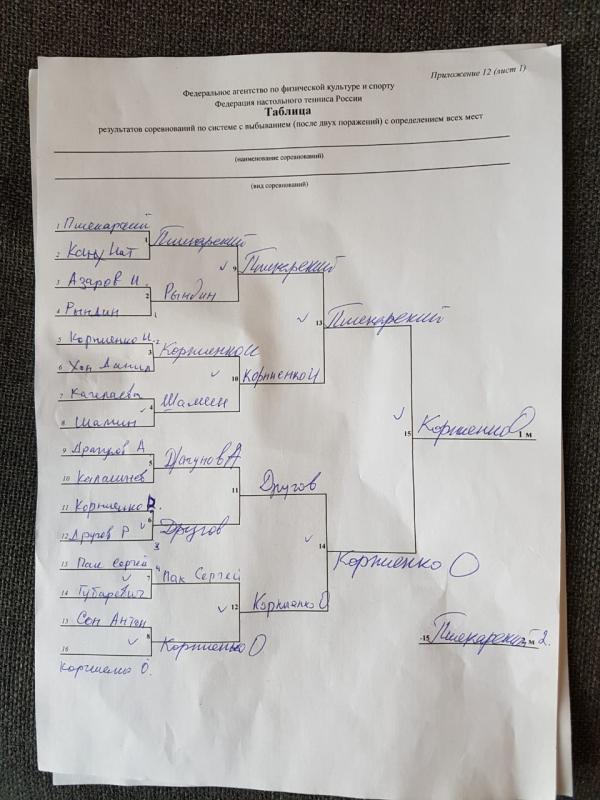 Приложение 12 (лист 1)
Федеральное агентство по физической культуре и спорту
Федерация настольного тенниса России
Таблица
результатов соревнований по системе с выбыванием (после двух поражений) с определением всех мест
(наименование соревнований)
(вид соревнований)
1 Пшекарский
1 Пшекарский
2
9 Пшекарский
3 Азаров И.
2 Рындин
4 Рындин
1
13 Пшекарский
5 Корниенко И.
-2
3 Корниенко И
6 Хан Данил
10 Корниенко И
7
4 Шамин
8 Шамин
15 Корниенко О 1 м
9 Драгунов А
5 Драгунов А
10
11 Другов
11 Корниенко В.
6 Другов
12 Другов Р
3
14 Корниенко О
13 Пак Сергей
4
7 Пак Сергей
14 Губаревич
12 Корниенко О
15 Сон Антон
8 Корниенко О
16
Корниенко О.
-15 Пшекарский 2 м